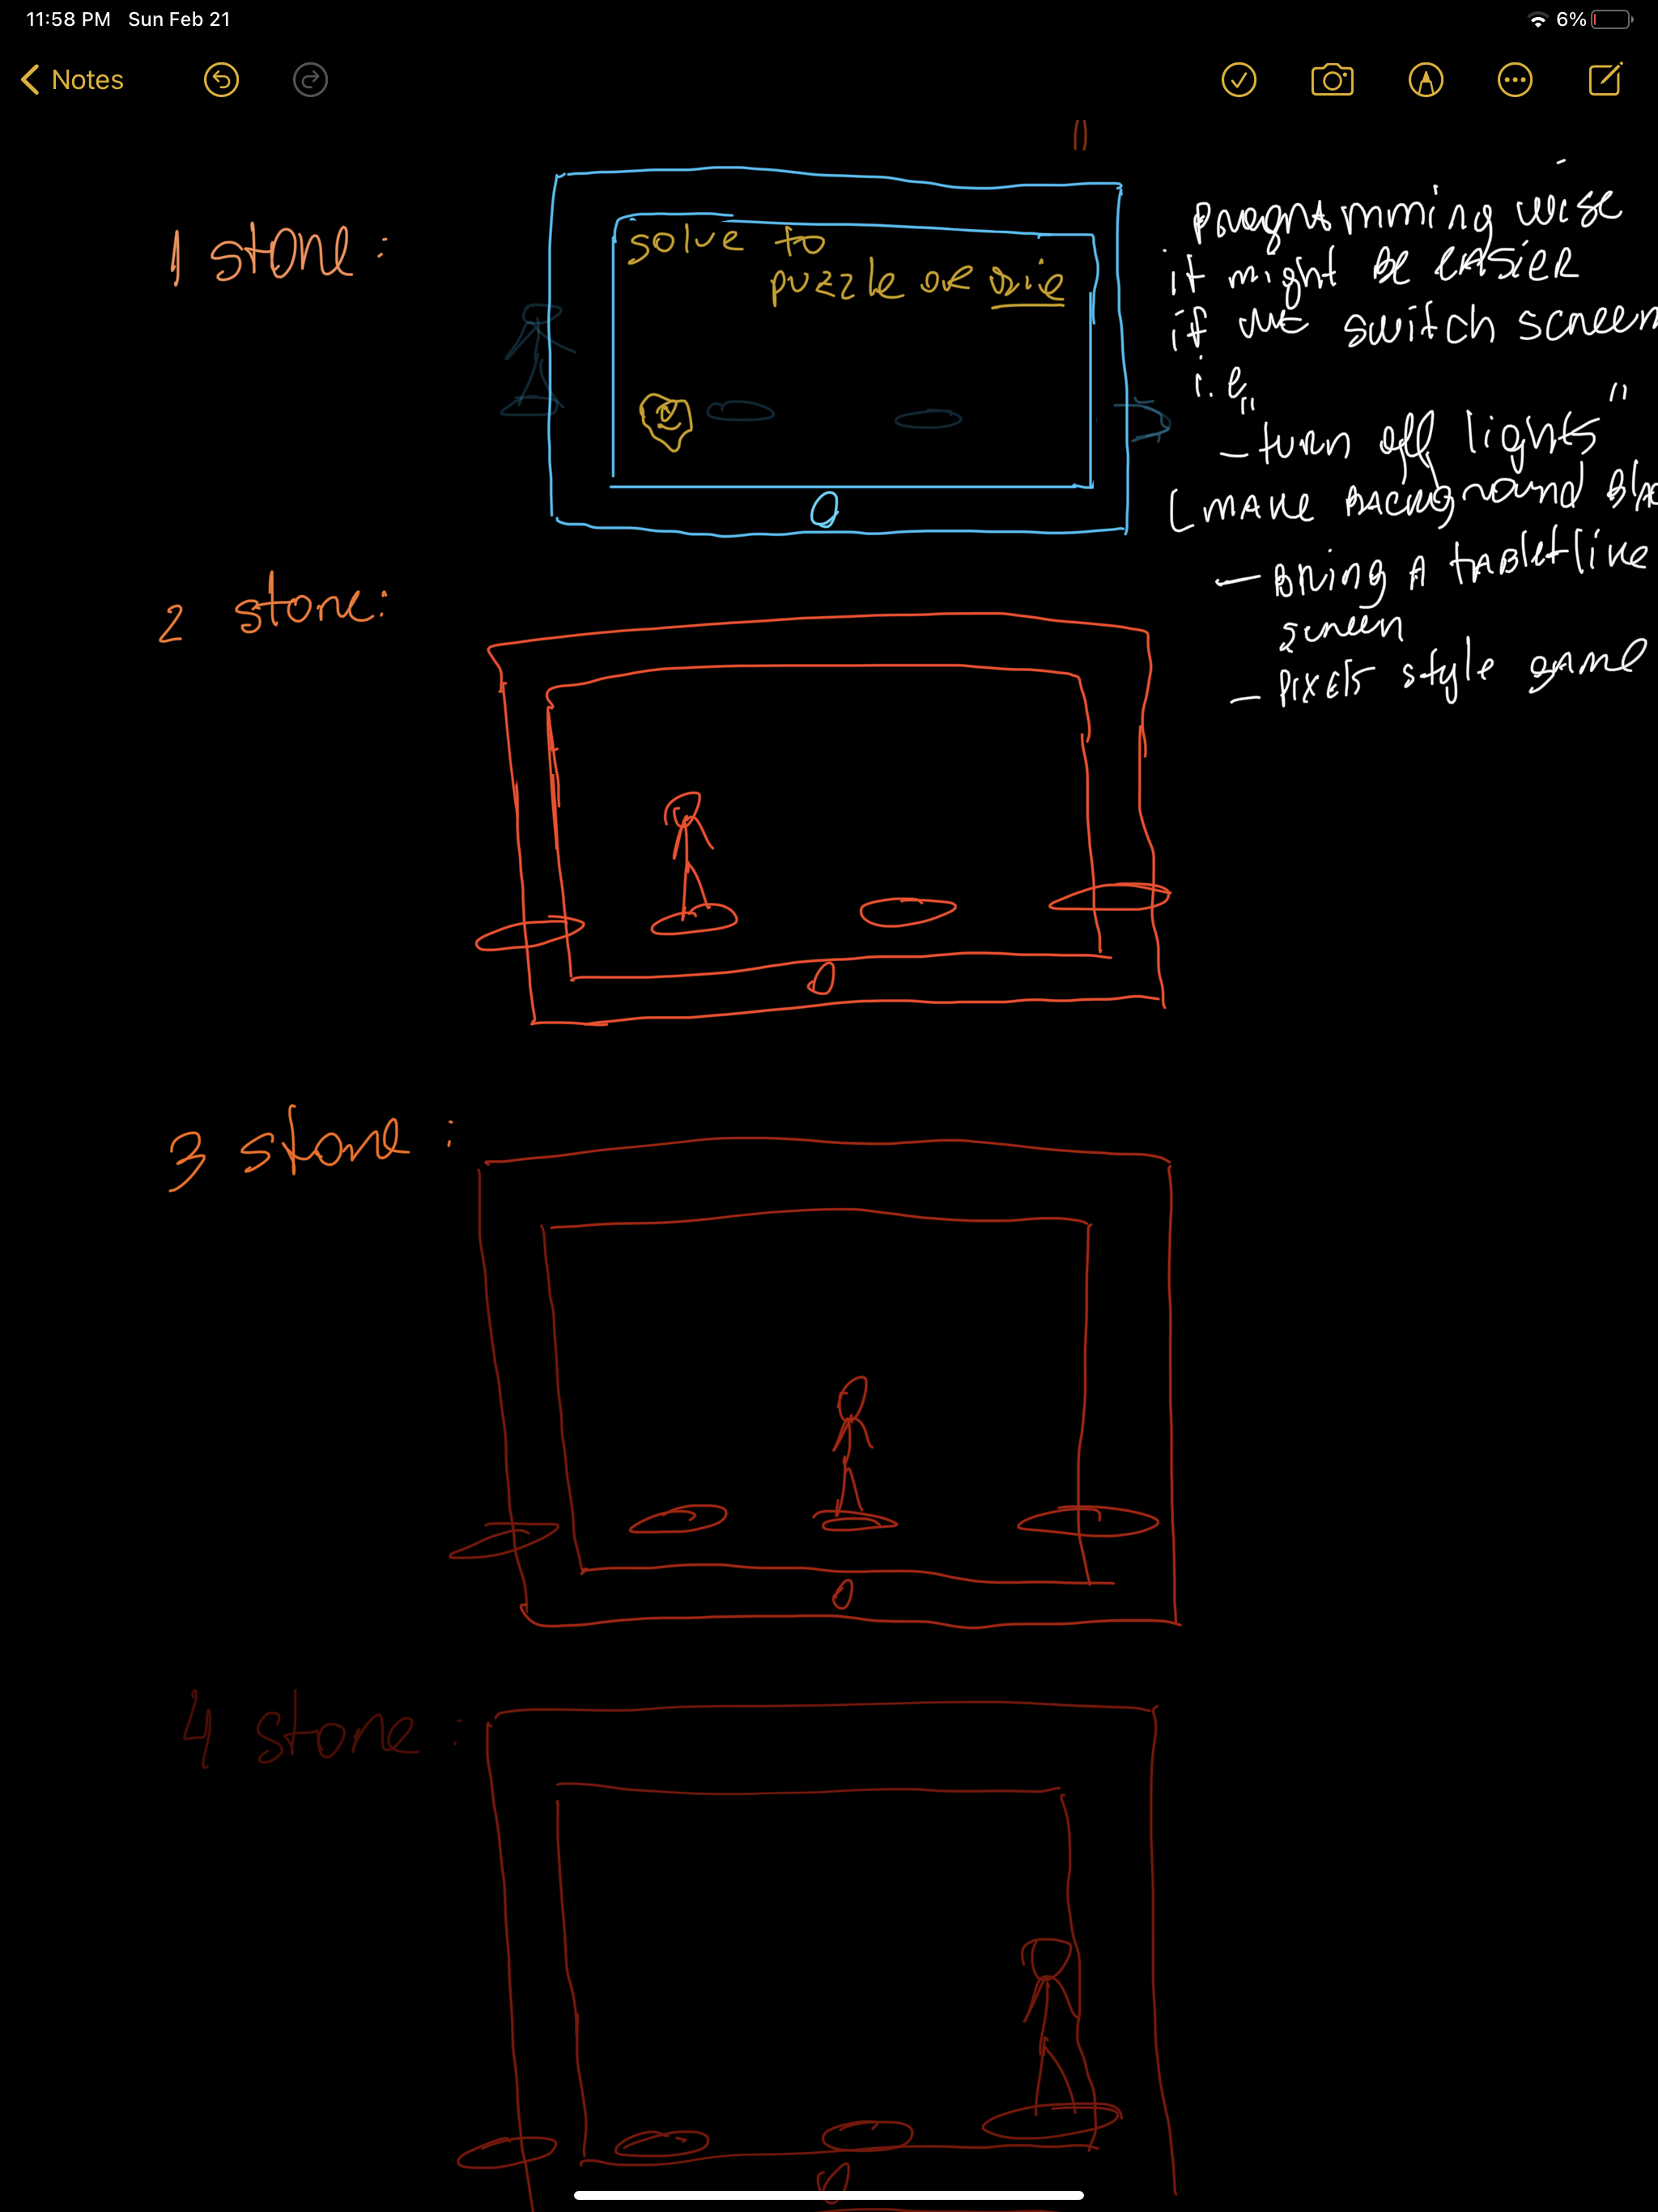 11:58 PM Sun Feb 21
6%
Notes
1 stone:
solve to
puzzle or die
programming wise
it might be easier
if we switch screen
i.e.
- turn off lights"
(make background bla
- Bring a tabletlike
screen
- pixels style game
2 stone:
3 stone:
4 stone: